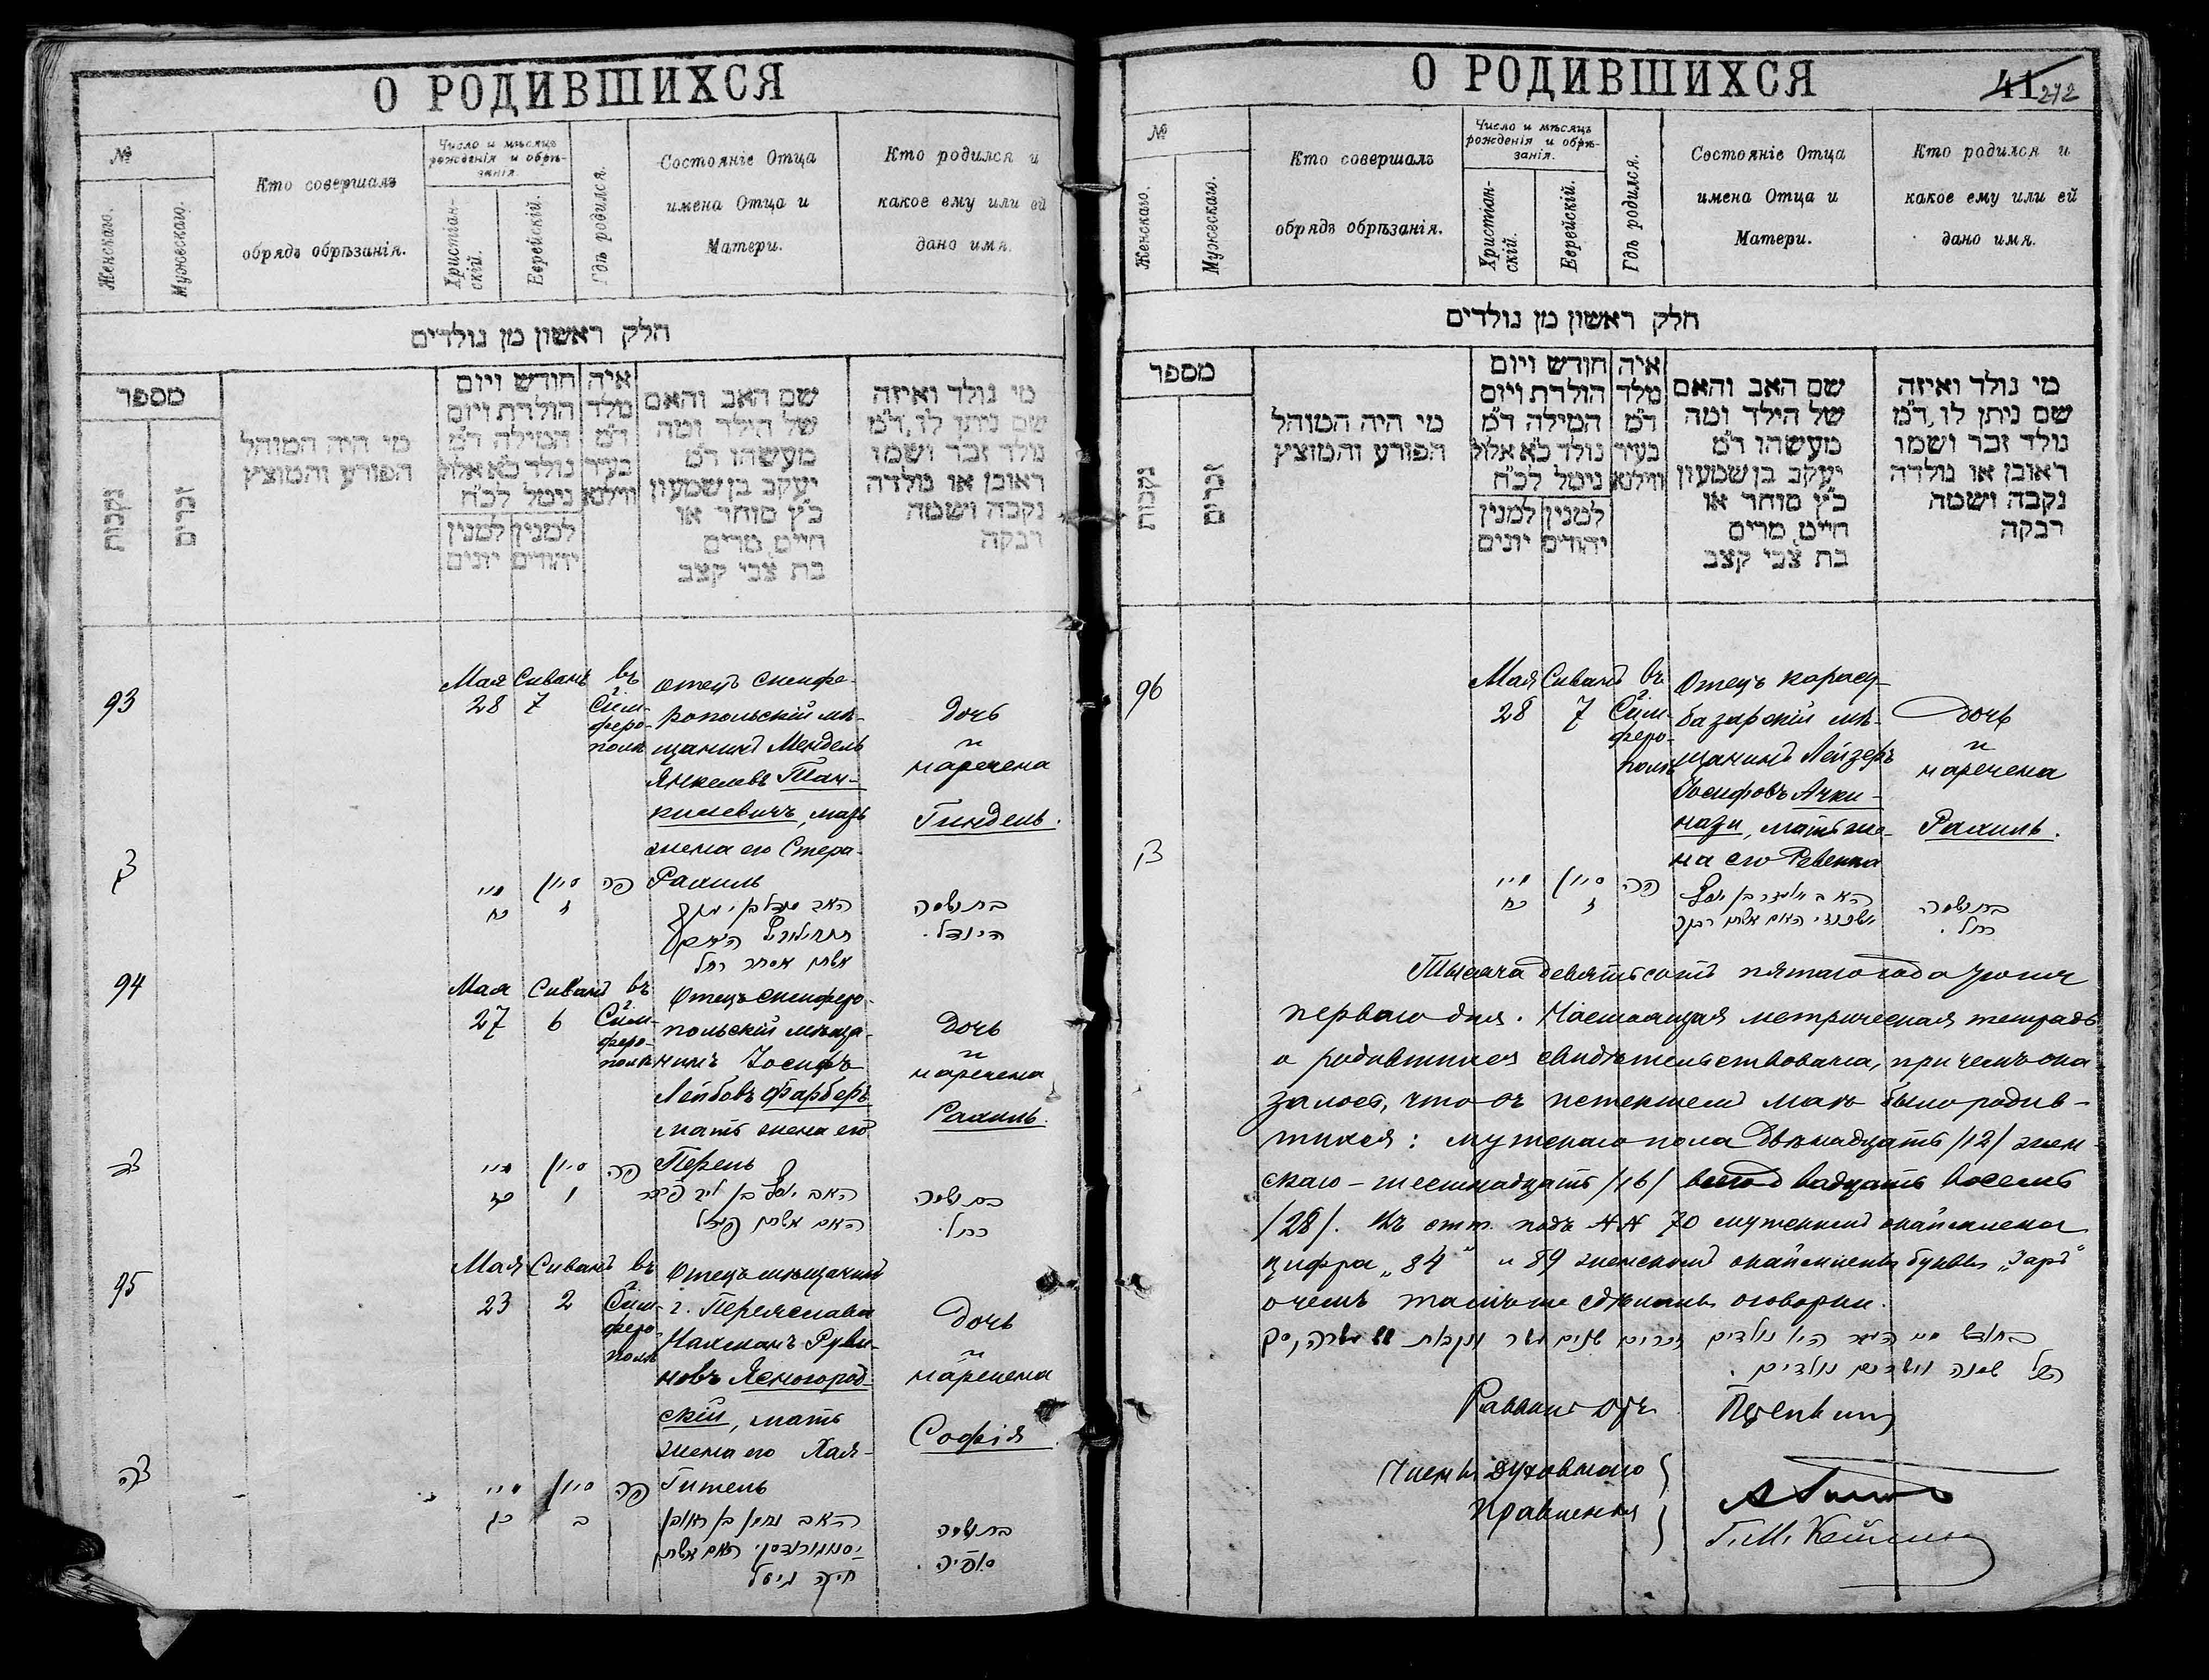 О РОДИВШИХСЯ
№
Женскаго.
Мужескаго.
Кто совершалъ
обрядъ обрѣзанія.
Число и мѣсяцъ
рожденія и обрѣ-
занія.
Христіан-
скій.
Еврейскій.
Гдѣ родился.
Состояніе Отца
имена Отца и
Матери.
Кто родился и
какое ему или ей
дано имя.
חלק ראשון מן נולדים
מספר
נקבות
זכרים
מי היה המוהל
הפורע והמוצץ
חודש ויום
הולדת ויום
המילה ד״מ
נולד כ״א אלול
נימל לכ״ח
למנין למנין
יהודים יונים
איה
נולד
ד״מ
בעיר
ווילנא
שם האב והאם
של הילד ומה
מעשהו ד״מ
יעקב בן שמעון
כ״ץ סוחר או
חייט, מרים
בת צבי קצב
מי נולד ואיזה
שם ניתן לו, ד״מ
נולד זכר ושמו
ראובן או נולדה
נקבה ושמה
רבקה
93
Мая Сиванъ въ
28 7
г. Сим-
феро-
полѣ
Отецъ симфе-
ропольскій мѣ-
щанинъ Мендель
Янкелевъ
мать
жена его Стера-
Рахиль
Дочь
и
наречена
Гиндель.
צג
מיי סיון פה
כח ז
בת ושמה
הינדל.
94
Мая Сиванъ въ
27 6
г. Сим-
феро-
полѣ
Отецъ симферо-
польскій мѣща-
нинъ Іосифъ
Лейбовъ Фарберъ
мать жена его
Перель
Дочь
и
наречена
Рахиль.
צד
מיי סיון פה
כז ו
האב יוסף בן ליב פרבר
האם אשתו פערל
בת ושמה
רחל.
95
Мая Сиванъ въ
23 2
г. Сим-
феро-
полѣ
Отецъ мѣщанинъ
г. Переяслава
Нахманъ Руви-
новъ Ясногород-
скій, мать
жена его Хая-
Гитель
Дочь
и
наречена
Софія.
צה
מיי סיון פה
כג ב
האב נחמן בן ראובן
יסנוגורודסקי האם אשתו
חיה גיטל
בת ושמה
סופיה.
О РОДИВШИХСЯ
41 272
№
Женскаго.
Мужескаго.
Кто совершалъ
обрядъ обрѣзанія.
Число и мѣсяцъ
рожденія и обрѣ-
занія.
Христіан-
скій.
Еврейскій.
Гдѣ родился.
Состояніе Отца
имена Отца и
Матери.
Кто родился и
какое ему или ей
дано имя.
חלק ראשון מן נולדים
מספר
נקבות
זכרים
מי היה המוהל
הפורע והמוצץ
חודש ויום
הולדת ויום
המילה ד״מ
נולד כ״א אלול
נימל לכ״ח
למנין למנין
יהודים יונים
איה
נולד
ד״מ
בעיר
ווילנא
שם האב והאם
של הילד ומה
מעשהו ד״מ
יעקב בן שמעון
כ״ץ סוחר או
חייט, מרים
בת צבי קצב
מי נולד ואיזה
שם ניתן לו, ד״מ
נולד זכר ושמו
ראובן או נולדה
נקבה ושמה
רבקה
96
Мая Сиванъ въ
28 7
г. Сим-
феро-
полѣ
Отецъ карасу-
базарскій мѣ-
щанинъ Лейзеръ
Іосифовъ Ачки-
нази, мать же-
на его Ревекка
Дочь
и
наречена
Рахиль.
צו
מיי סיון פה
כח ז
האב אליעזר בן יוסף
אשכנזי האם אשתו רבקה
בת ושמה
רחל.
Тысяча девятьсотъ пятаго года іюня
перваго дня. Настоящая метрическая тетрадь
о родившихся свидѣтельствована, при чемъ ока-
залось, что въ истекшемъ маѣ было родив-
шихся: мужескаго пола двѣнадцать /12/ жен-
скаго - шестнадцать /16/ всего двадцать восемь
/28/. Въ стт. подъ №№ 70 мужеской окаймлена
цифра „84" и 89 женской окаймлены буквы
о чемъ тамъ же сдѣланы оговорки.
בחודש מיי העבר היו נולדים זכרים שנים עשר ונקבות
הכל שמונה ועשרים נולדים.
Раввинъ
Члены Духовнаго
Правленія